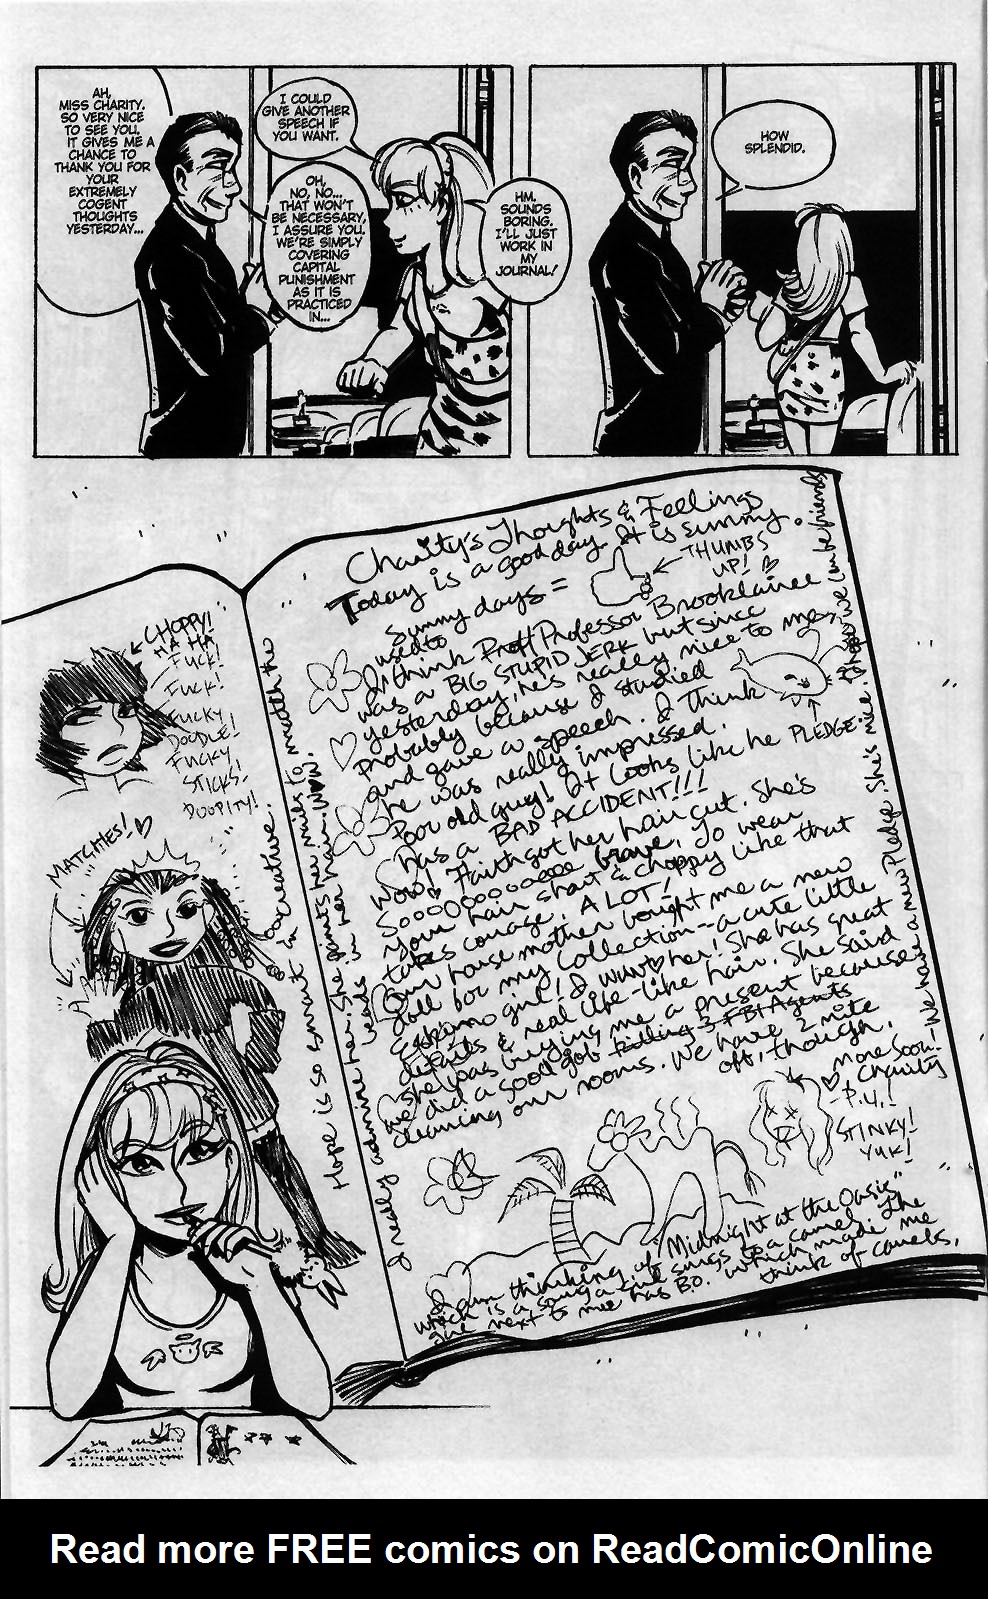 AH,
MISS CHARITY.
SO VERY NICE
TO SEE YOU.
IT GIVES ME A
CHANCE TO
THANK YOU FOR
YOUR
EXTREMELY
COGENT
THOUGHTS
YESTERDAY...
I COULD
GIVE ANOTHER
SPEECH IF
YOU WANT.
OH,
NO, NO...
THAT WON'T
BE NECESSARY,
I ASSURE YOU.
WE'RE SIMPLY
COVERING
CAPITAL
PUNISHMENT
AS IT IS
PRACTICED
IN...
HM.
SOUNDS
BORING.
I'LL JUST
WORK IN
MY
JOURNAL!
HOW
SPLENDID.
CHOPPY!
HA HA
FUCK!
FUCK!
FUCKY
DOODLE!
FUCKY
STICKS!
DOOPITY!
MATCHES!
Hope is so smart & creative.
She paints her nails to match the
beads in her hair. WOW!
I really admire her.
Charity's Thoughts & Feelings
Today is a good day. It is sunny.
Sunny days =
THUMBS
UP!
used to
I think Professor Brooklaines
was a BIG STUPID JERK but since
yesterday, he's really nice to me,
probably because I studied
and gave a speech. I think
he was really impressed.
Poor old guy! It looks like he
has a BAD ACCIDENT!!!
PLEDGE
Wow! Faith got her hair cut. She's
Soooooooooo brave. To wear
your hair short & choppy like that
takes courage. A LOT!
Our house mother bought me a new
doll for my collection--a cute little
eskimo girl! I luv her! She has great
details & real life-like hair. She said
she was buying me a present because
we did a good job killing 3 FBI Agents
cleaning our rooms. We have 2 nite
off, though.
More Soon!
Charity
We have a new Pledge. She's nice. I hope we can be friends
P.U.!
STINKY!
YUK!
I am thinking of "Midnight at the Oasis"
which is a song a girl sings to a camel. The
girl next to me has B.O. which made me
think of camels.
Read more FREE comics on ReadComicOnline